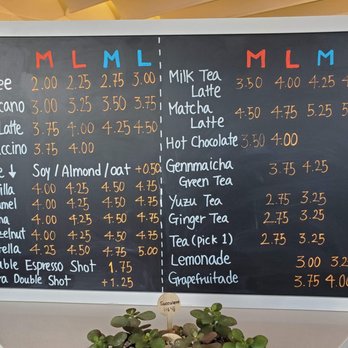 M L M L
ee 2.00 2.25 2.75 3.00
cano 3.00 3.25 3.50 3.75
Latte 3.75 4.00 4.25 4.50
ccino 3.75 4.00
e ↓ Soy / Almond / oat +0.50
illa 4.00 4.25 4.50 4.75
amel 4.00 4.25 4.50 4.75
ha 4.00 4.25 4.50 4.75
elnut 4.00 4.25 4.50 4.75
ella 4.25 4.50 4.75 5.00
able Espresso Shot 1.75
ra Double Shot +1.25
M L M
Milk Tea Latte 3.50 4.00 4.25 4
Matcha Latte 4.50 4.75 5.25 5
Hot Chocolate 3.50 4.00
Gennmaicha Green Tea 3.75 4.25
Yuzu Tea 2.75 3.25
Ginger Tea 2.75 3.25
Tea (pick 1) 2.75 3.25
Lemonade 3.00 3.2
Grapefruitade 3.75 4.00